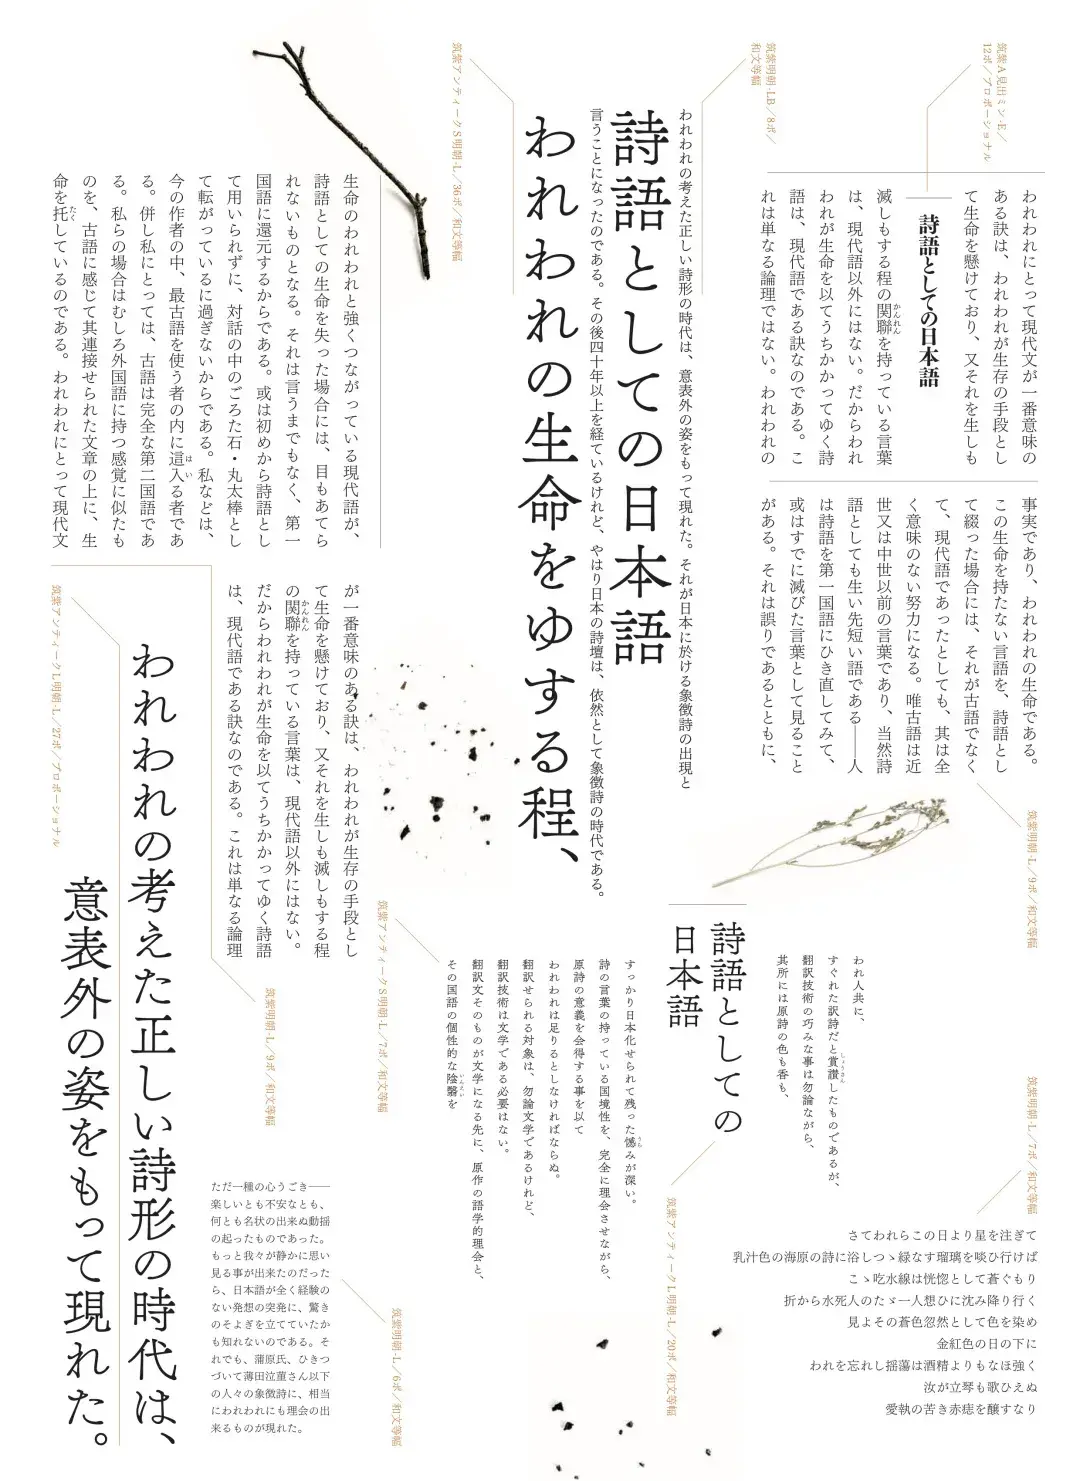 筑紫A見出ミン-E／
12ポ／プロポーショナル
われわれにとって現代文が一番意味の
ある訣は、われわれが生存の手段とし
て生命を懸けており、又それを生しも
詩語としての日本語
滅しもする程の関聯を持っている言葉
かんれん
は、現代語以外にはない。だからわれ
われが生命を以てうちかかってゆく詩
語は、現代語である訣なのである。こ
れは単なる論理ではない。われわれの
事実であり、われわれの生命である。
この生命を持たない言語を、詩語とし
て綴った場合には、それが古語でなく
て、現代語であったとしても、其は全
く意味のない努力になる。唯古語は近
世又は中世以前の言葉であり、当然詩
語としても生い先短い語である──人
は詩語を第一国語にひき直してみて、
或はすでに滅びた言葉として見ること
がある。それは誤りであるとともに、
筑紫明朝-L／9ポ／和文等幅
筑紫明朝-LB／8ポ／
和文等幅
われわれの考えた正しい詩形の時代は、意表外の姿をもって現れた。それが日本に於ける象徴詩の出現と
言うことになったのである。その後四十年以上を経ているけれど、やはり日本の詩壇は、依然として象徴詩の時代である。
詩語としての日本語
われわれの生命をゆする程、
筑紫アンティークS明朝-L／36ポ／和文等幅
生命のわれわれと強くつながっている現代語が、
詩語としての生命を失った場合には、目もあてら
れないものとなる。それは言うまでもなく、第一
国語に還元するからである。或は初めから詩語とし
て用いられずに、対話の中のごろた石・丸太棒とし
て転がっているに過ぎないからである。私などは、
今の作者の中、最古語を使う者の内に這入る者であ
はい
る。併し私にとっては、古語は完全な第二国語であ
る。私らの場合はむしろ外国語に持つ感覚に似たも
のを、古語に感じて其連接せられた文章の上に、生
命を托しているのである。われわれにとって現代文
たく
が一番意味のある訣は、われわれが生存の手段とし
て生命を懸けており、又それを生しも滅しもする程
の関聯を持っている言葉は、現代語以外にはない。
かんれん
だからわれわれが生命を以てうちかかってゆく詩語
は、現代語である訣なのである。これは単なる論理
筑紫明朝-L／9ポ／和文等幅
筑紫アンティークL明朝-L／27ポ／プロポーショナル
われわれの考えた正しい詩形の時代は、
意表外の姿をもって現れた。
われ人共に、
すぐれた訳詩だと賞讃したものであるが、
しょうさん
翻訳技術の巧みな事は勿論ながら、
其所には原詩の色も香も、
詩語としての
日本語
すっかり日本化せられて残った憾みが深い。
うら
詩の言葉の持っている国境性を、完全に理会させながら、
原詩の意義を会得する事を以て
われわれは足りるとしなければならぬ。
翻訳せられる対象は、勿論文学であるけれど、
翻訳技術は文学である必要はない。
翻訳文そのものが文学になる先に、原作の語学的理会と、
その国語の個性的な陰翳を
いんえい
筑紫アンティークS明朝-L／7ポ／和文等幅
筑紫アンティークL明朝-L／20ポ／和文等幅
筑紫明朝-L／7ポ／和文等幅
さてわれらこの日より星を注ぎて
乳汁色の海原の詩に浴しつゝ緑なす瑠璃を啖ひ行けば
こゝ吃水線は恍惚として蒼ぐもり
折から水死人のたゞ一人想ひに沈み降り行く
見よその蒼色忽然として色を染め
金紅色の日の下に
われを忘れし揺蕩は酒精よりもなほ強く
汝が立琴も歌ひえぬ
愛執の苦き赤痣を醸すなり
ただ一種の心うごき──
楽しいとも不安なとも、
何とも名状の出来ぬ動揺
の起ったものであった。
もっと我々が静かに思い
見る事が出来たのだった
ら、日本語が全く経験の
ない発想の突発に、驚き
のそよぎを立てていたか
も知れないのである。そ
れでも、蒲原氏、ひきつ
づいて薄田泣菫さん以下
の人々の象徴詩に、相当
にわれわれにも理会の出
来るものが現れた。
筑紫明朝-L／6ポ／和文等幅